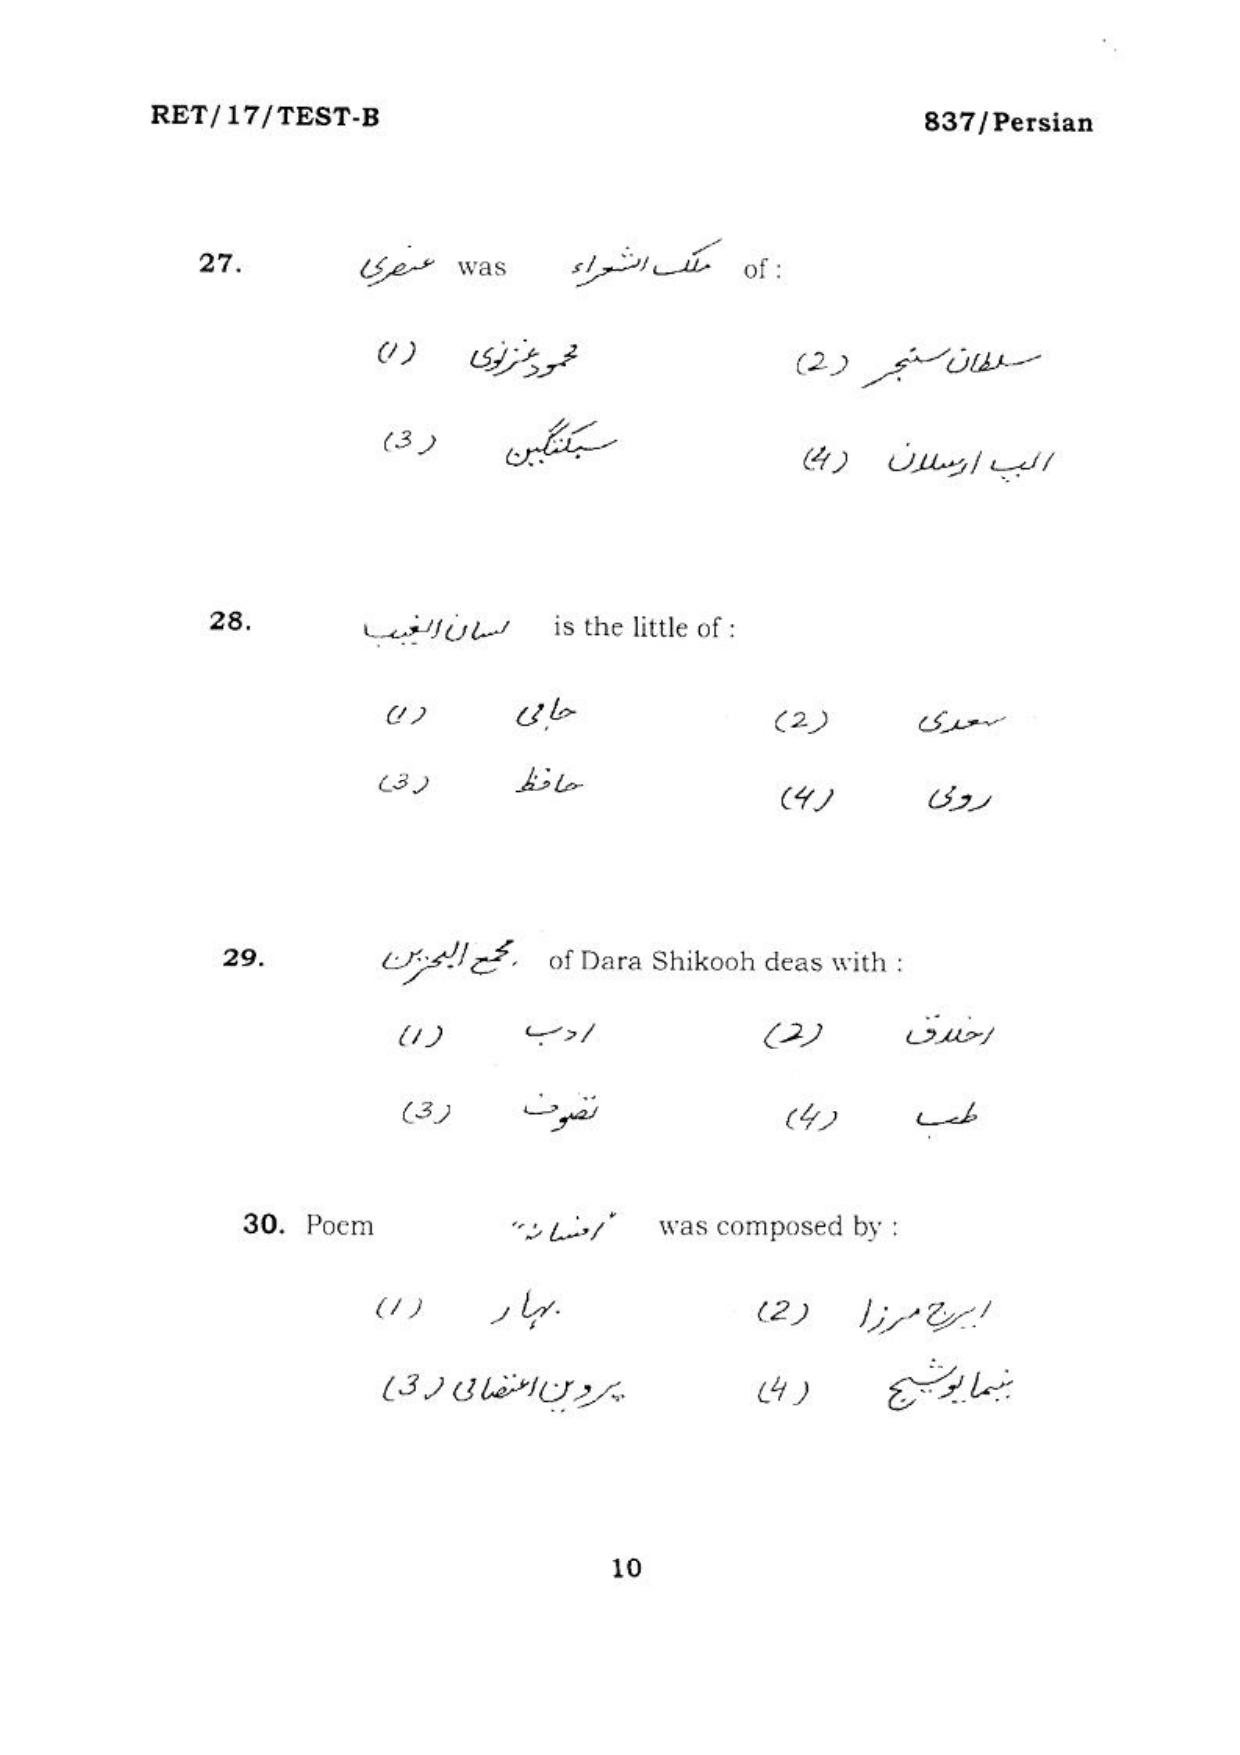 RET/17/TEST-B 837/Persian
27. عنصری was ملک الشعراء of :
(1) محمود غزنوی (2) سلطان سنجر
(3) سبکتگین (4) الب ارسلان
28. لسان الغیب is the little of :
(1) جامی (2) سعدی
(3) حافظ (4) رومی
29. مجمع البحرین of Dara Shikooh deas with :
(1) ادب (2) اخلاق
(3) تصوف (4) طب
30. Poem "افسانہ" was composed by :
(1) بہار (2) ایرج مرزا
(3) پروین اعتصامی (4) نیما یوشیج
10